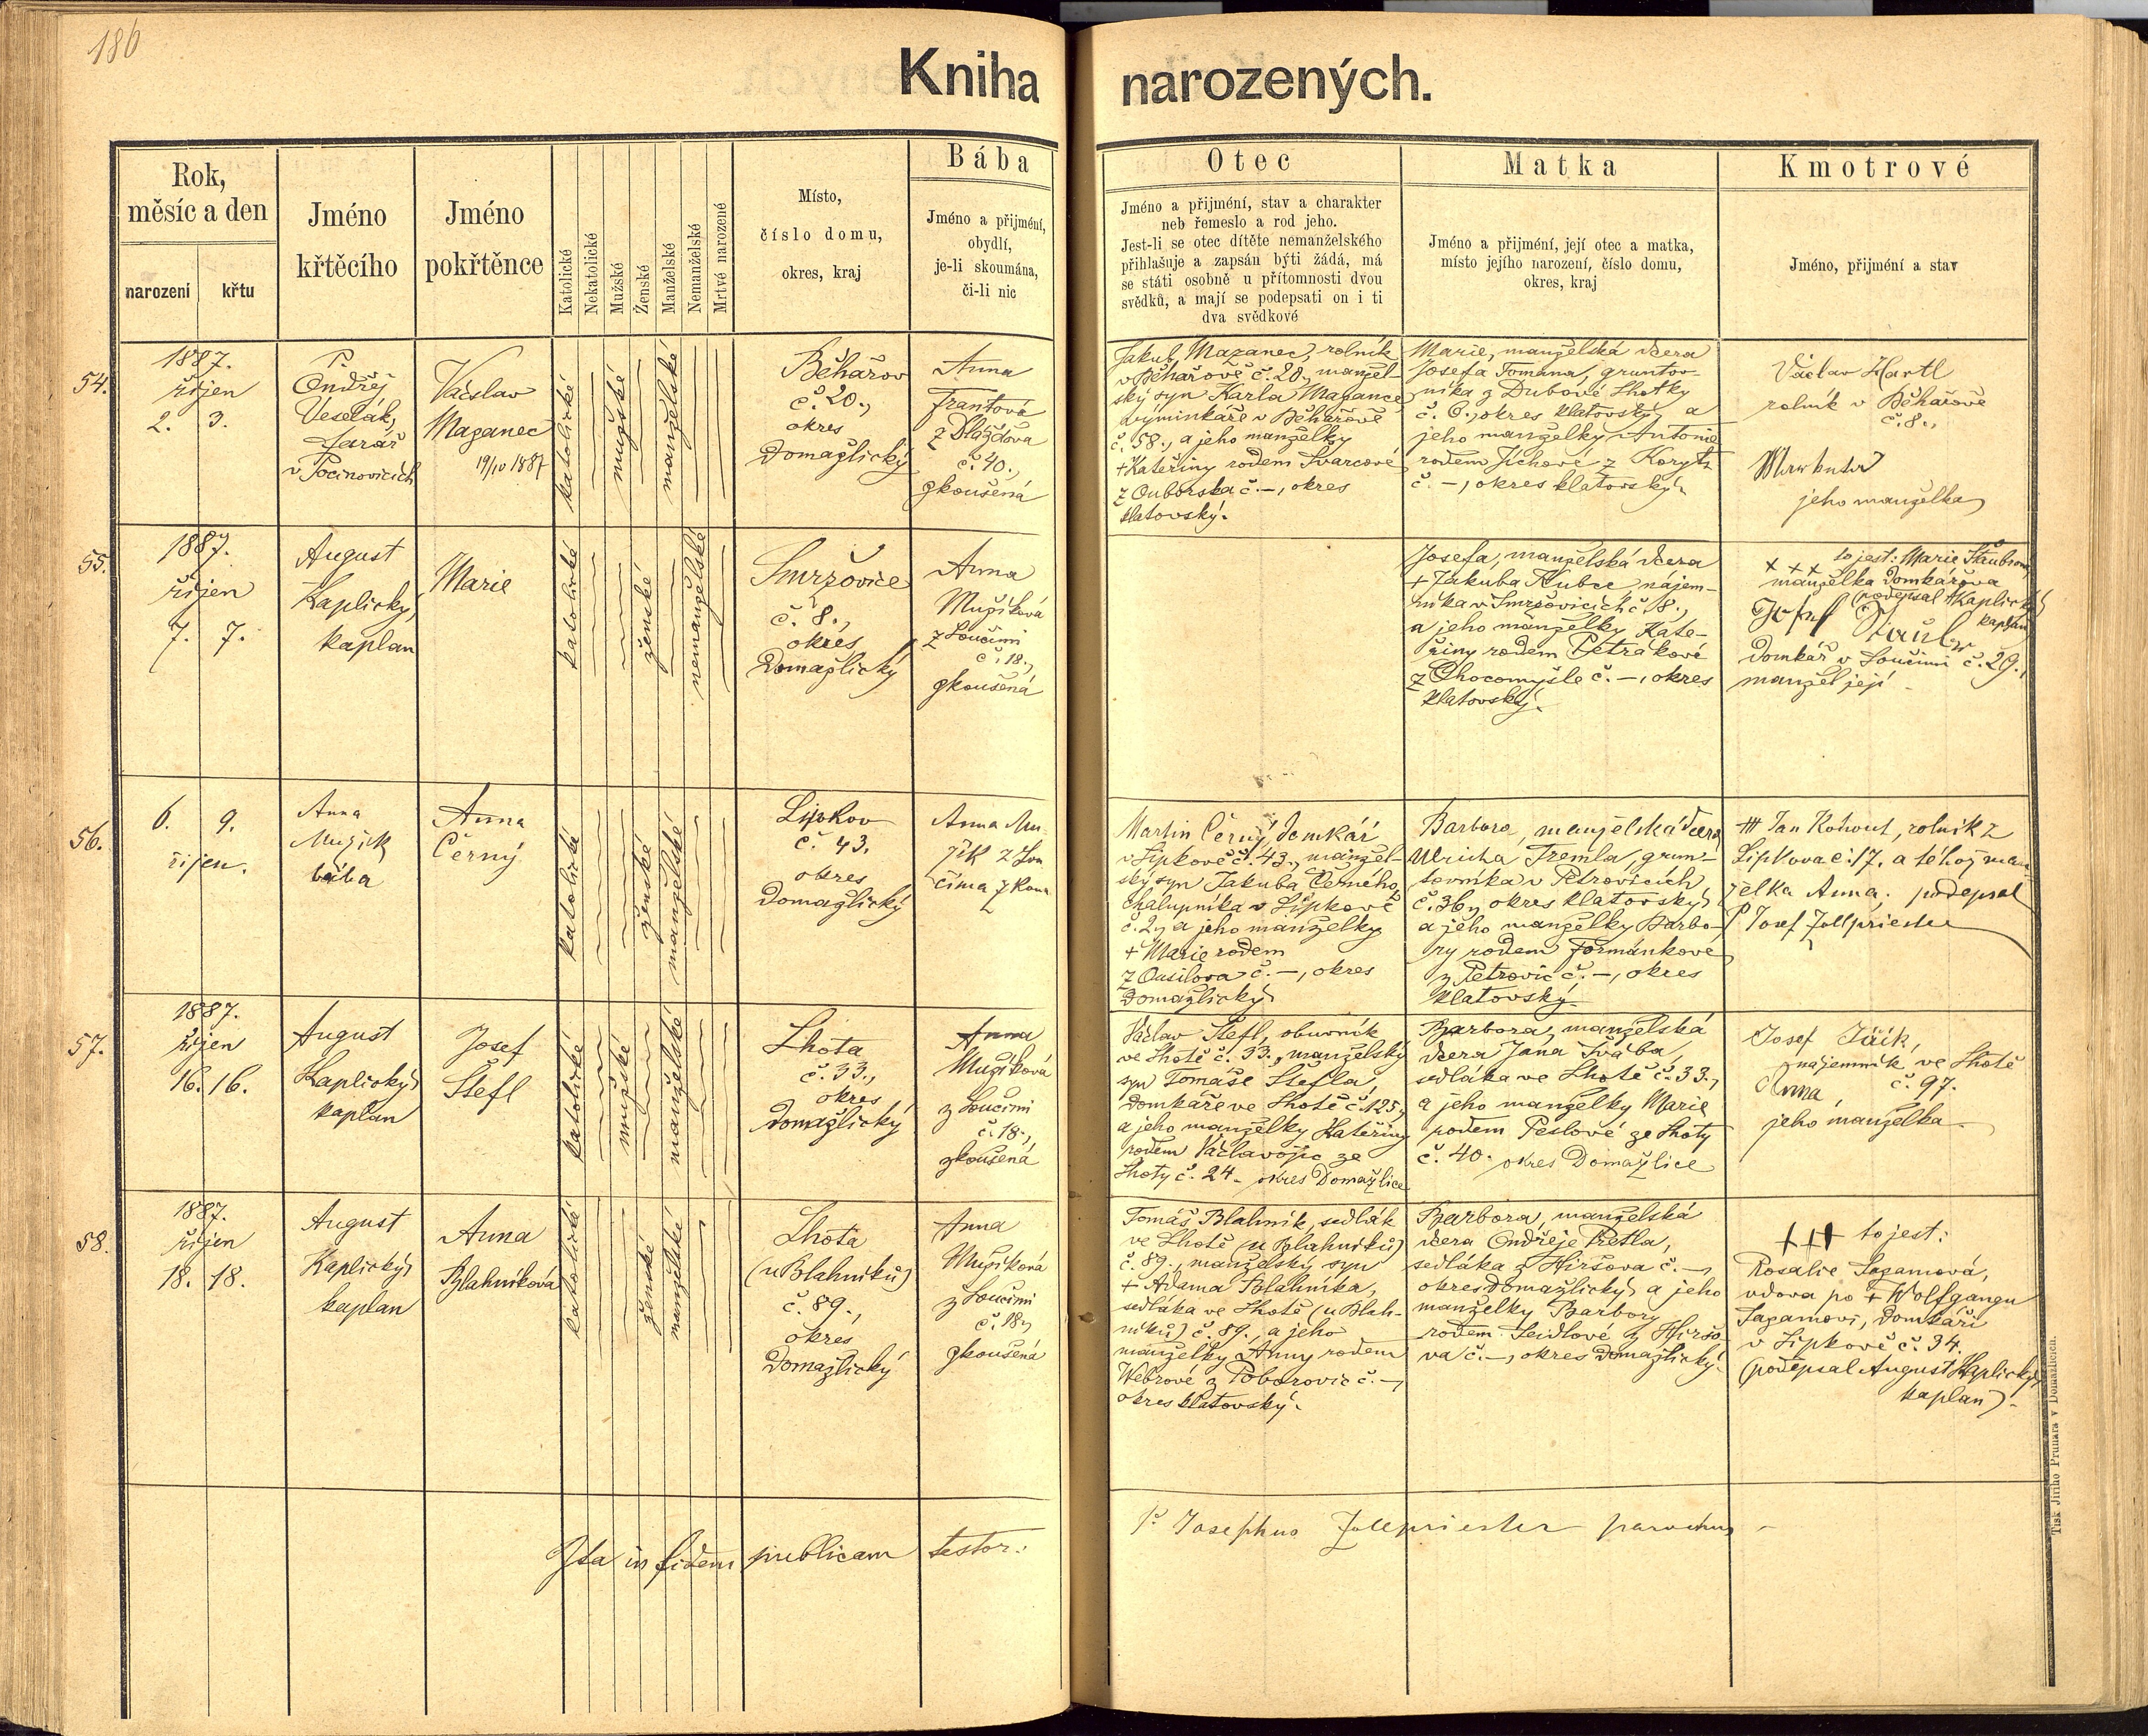 186
Kniha narozených.
Rok,
měsíc a den
narození
křtu
Jméno
křtěcího
Jméno
pokřtěnce
Katolické
Nekatolické
Mužské
Ženské
Manželské
Nemanželské
Mrtvě narozené
Místo,
číslo domu,
okres, kraj
Bába
Jméno a přijmění,
obydlí,
je-li skoumána,
či-li nic
Otec
Jméno a přijmění, stav a charakter
neb řemeslo a rod jeho.
Jest-li se otec dítěte nemanželského
přihlašuje a zapsán býti žádá, má
se státi osobně u přítomnosti dvou
svědků, a mají se podepsati on i ti
dva svědkové
Matka
Jméno a přijmění, její otec a matka,
místo jejího narození, číslo domu,
okres, kraj
Kmotrové
Jméno, přijmění a stav
54.
1887.
říjen
2. 3.
P.
Ondřej
Veselák,
farář
v Pocinovicích
Václav
Mazanec
19/10 1887
katolické
mužské
manželské
Běhařov
č. 20.,
okres
Domažlický
Anna
Frantová
z Dlažďova
č. 40.,
zkoušená
Jakub Mazanec, rolník
v Běhařově č. 20., manžel-
ský syn Karla Mazance
výminkáře v Běhařově
č. 58., a jeho manželky
+ Kateřiny rodem Švarcové
z Ouborska č. –, okres
klatovský.
Marie, manželská dcera
Josefa Tomana, gruntov-
níka z Dubové Lhotky
č. 6., okres klatovský, a
jeho manželky Antonie
rodem Jíchové z Koryt
č. –, okres klatovský.
Václav Hartl
rolník v Běhařově
č. 8.,
jeho manželka
55.
1887.
říjen
7. 7.
August
Kaplický,
kaplan
Marie
katolické
ženské
nemanželské
Smržovice
č. 8.,
okres
Domažlický
Anna
Mužíková
z Loučimi
č. 18.,
zkoušená
Josefa, manželská dcera
+ Jakuba Kubce nájem-
níka v Smržovicích č. 8.,
a jeho manželky Kate-
řiny rodem Petrákové
z Chocomyšle č. –, okres
klatovský.
+ + + to jest: Marie
manželka domkářova
(podepsal A Kaplický
kaplan
Josef
domkář v Loučimi č. 29.,
manžel její
56.
6. 9.
říjen.
Anna
Mužik
bába
Anna
Černý
katolická
ženské
manželské
Lipkov
č. 43.
okres
Domažlický
Anna Mu-
žik z Lou
číma zkou
Martin Černý, domkář
v Lipkově č. 43., manžel-
ský syn Jakuba Černého,
chalupníka v Lipkově
č. 2., a jeho manželky
+ Marie rodem
z Ousilova č. –, okres
Domažlický
Barbora, manželská dcera
Ulricha Tremla, grun-
tovníka v Petrovicích
č. 36., okres klatovský,
a jeho manželky Barbo-
ry rodem Formánkové
z Petrovic č. –, okres
klatovský.
+++ Jan Kohout, rolník z
Lipkova č. 17. a téhož man
želka Anna, podepsal
P Josef Zollpriester
57.
1887.
říjen
16. 16.
August
Kaplický
kaplan
Josef
Štefl
katolické
mužské
manželské
Lhota
č. 33.,
okres
Domažlický
Anna
Mužíková
z Loučimi
č. 18.,
zkoušená
Václav Štefl, obuvník
ve Lhotě č. 33., manželský
syn Tomáše Štefla,
domkáře ve Lhotě č. 125,
a jeho manželky Kateřiny
rodem Václavojic ze
Lhoty č. 24 – okres Domažlice
Barbora, manželská
dcera Jana Švába,
sedláka ve Lhotě č. 33.,
a jeho manželky Marie
rodem Peslové ze Lhoty
č. 40. okres Domažlice
Josef
nájemník, ve Lhotě
Anna č. 97.
jeho manželka.
58.
1887.
říjen
18. 18.
August
Kaplický
kaplan
Anna
Blahníková
katolické
ženské
manželské
Lhota
(u Blahníků)
č. 89.,
okres
Domažlický
Anna
Mužíková
z Loučimi
č. 18.,
zkoušená
Tomáš Blahník, sedlák
ve Lhotě (u Blahníků)
č. 89., manželský syn
+ Adama Blahníka,
sedláka ve Lhotě (u Blah-
níků) č. 89., a jeho
manželky Anny rodem
Webrové z Poborovic č. –,
okres klatovský.
Barbora, manželská
dcera Ondřeje Tretla,
sedláka z Hiršova č. –,
okres Domažlický, a jeho
manželky Barbory
rodem Seidlové z Hiršo-
va č. –, okres Domažlický.
+++ to jest:
Rosalie Sagamová,
vdova po + Wolfgangu
Sagamovi, domkáři
v Lipkově č. 34.
(podepsal August Kaplický,
kaplan).
Ita in fidem publicam testor: P. Josephus Zollpriester parochus
Tisk Jiřího Prunara v Domažlicích.